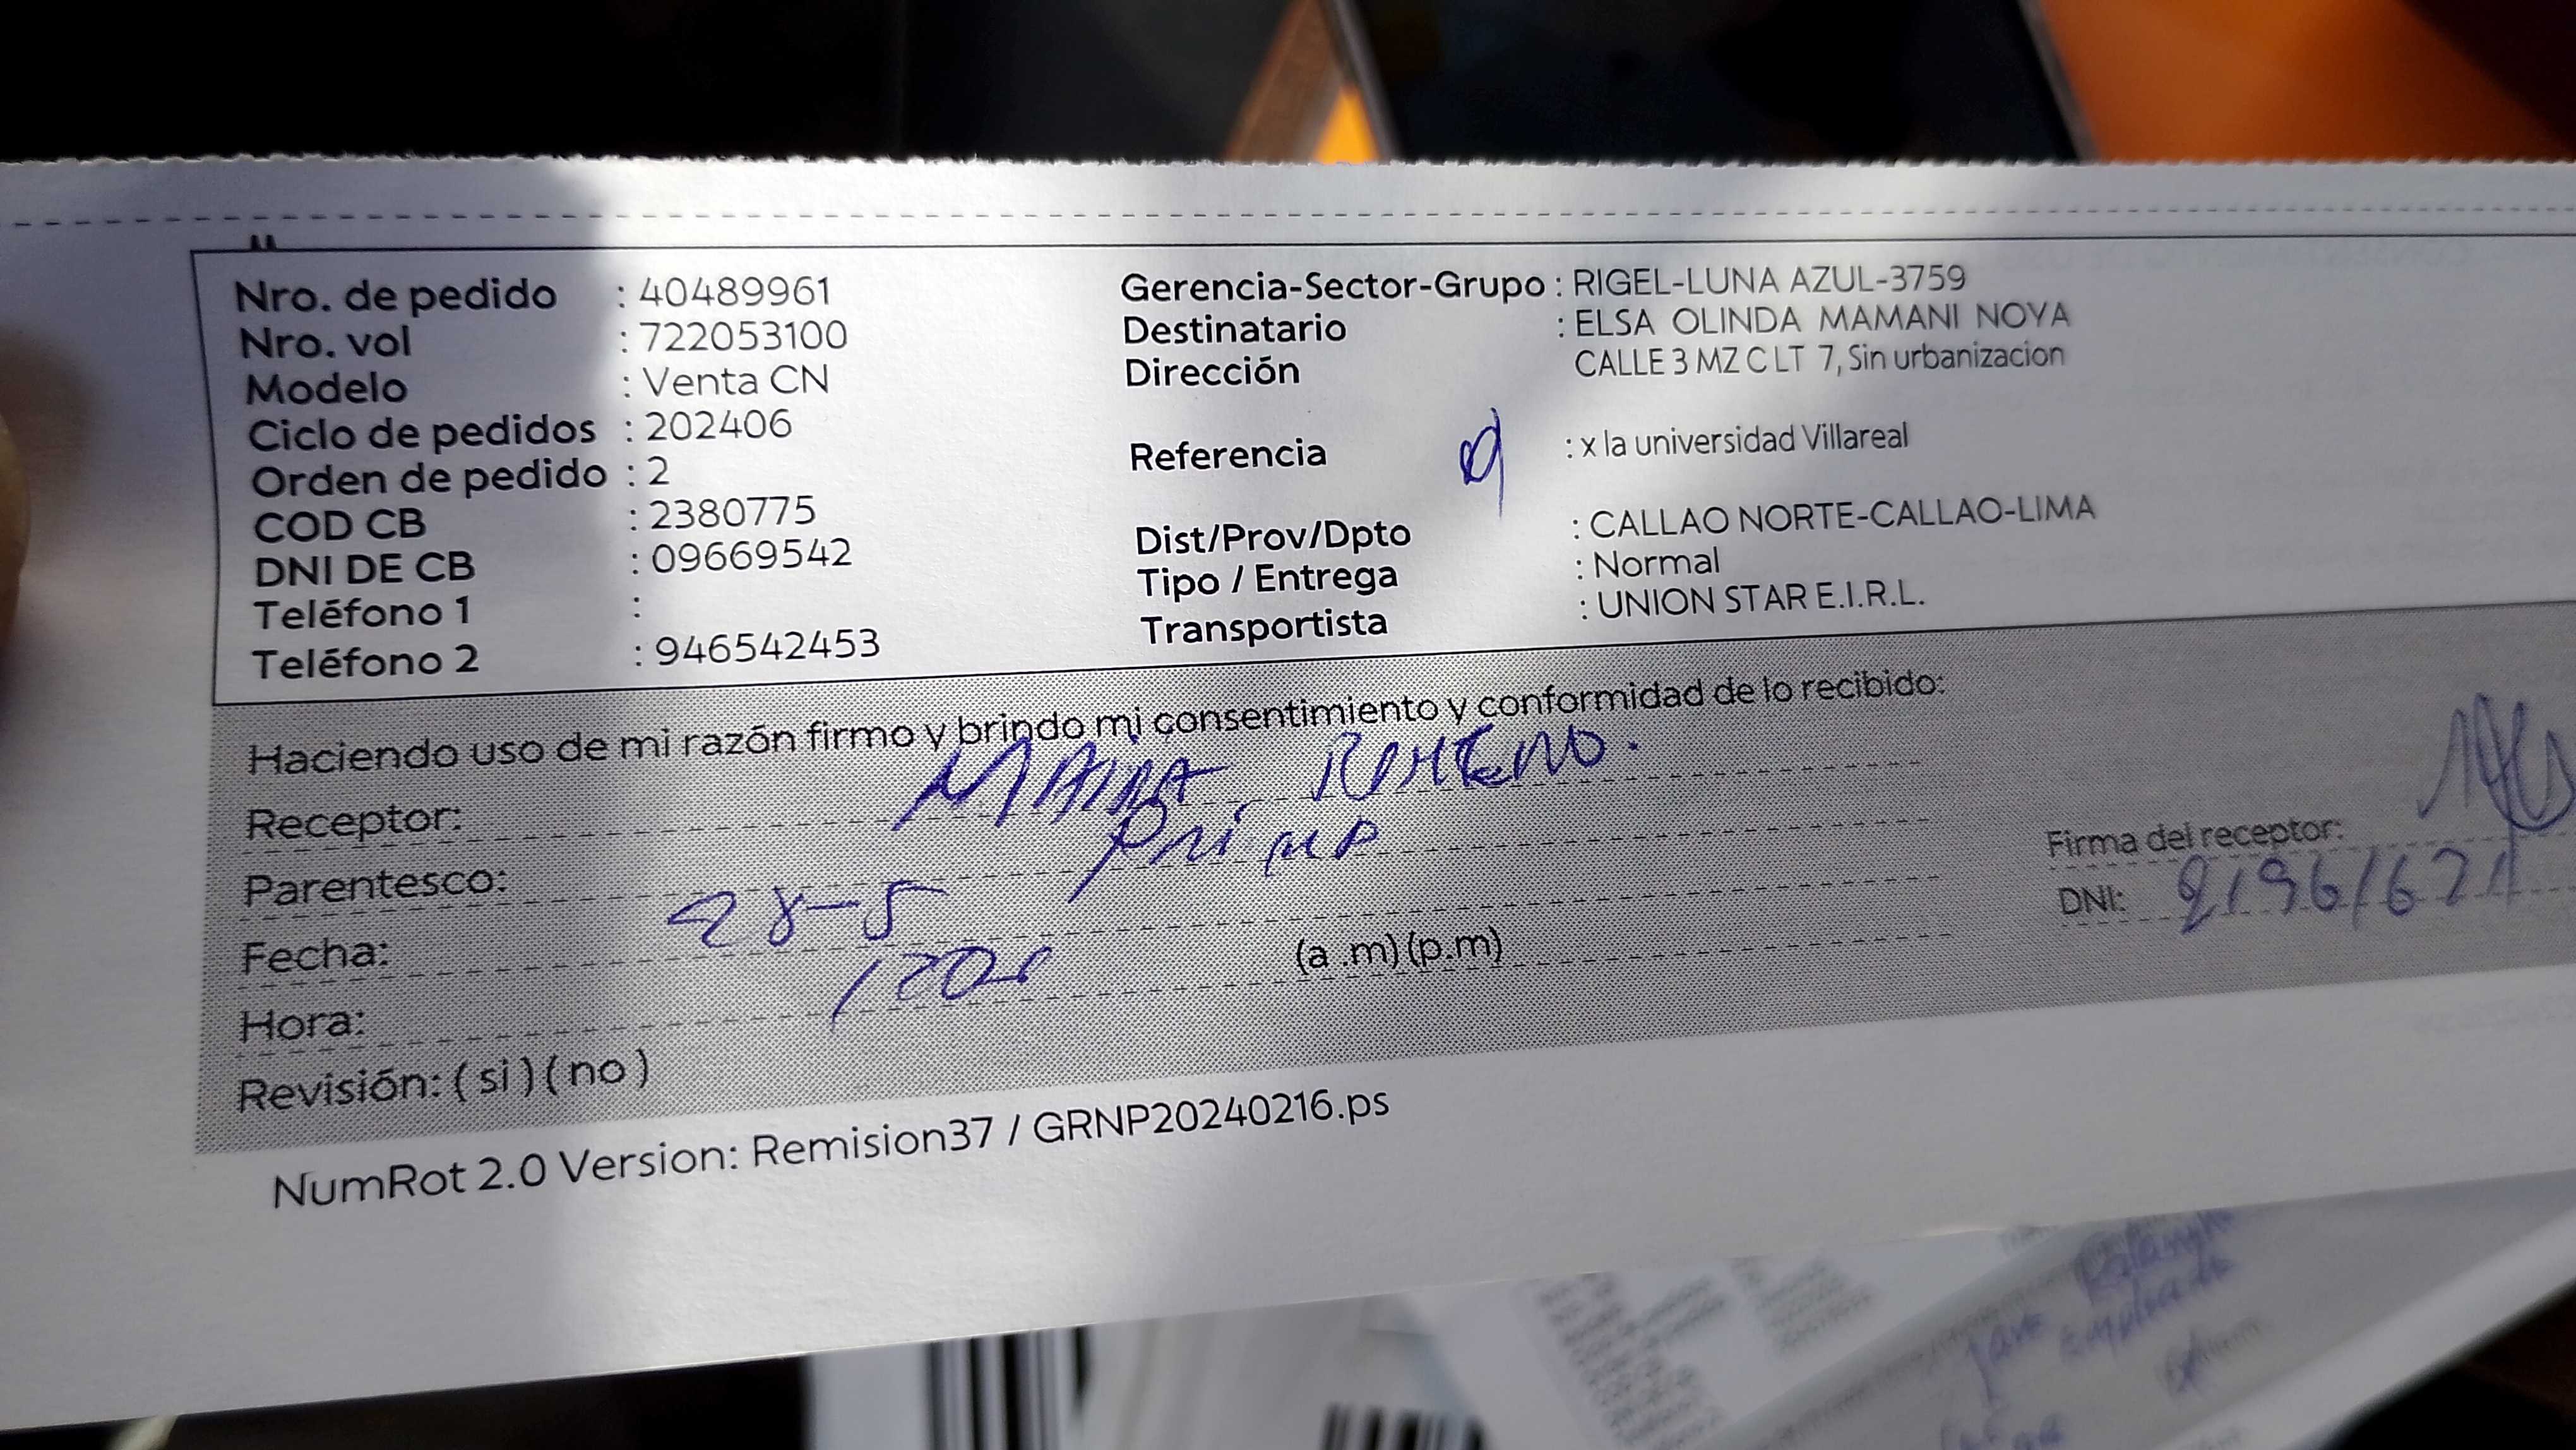 Nro. de pedido : 40489961
Nro. vol : 722053100
Modelo : Venta CN
Ciclo de pedidos : 202406
Orden de pedido : 2
COD CB : 2380775
DNI DE CB : 09669542
Teléfono 1 :
Teléfono 2 : 946542453
Gerencia-Sector-Grupo : RIGEL-LUNA AZUL-3759
Destinatario : ELSA OLINDA MAMANI NOYA
Dirección CALLE 3 MZ C LT 7, Sin urbanizacion
Referencia : x la universidad Villareal
Dist/Prov/Dpto : CALLAO NORTE-CALLAO-LIMA
Tipo / Entrega : Normal
Transportista : UNION STAR E.I.R.L.
Haciendo uso de mi razón firmo y brindo mi consentimiento y conformidad de lo recibido:
Receptor:
Parentesco:
Fecha: 28-5
Hora: (a .m) (p.m)
Revisión: ( si ) ( no )
Firma del receptor:
DNI:
NumRot 2.0 Version: Remision37 / GRNP20240216.ps